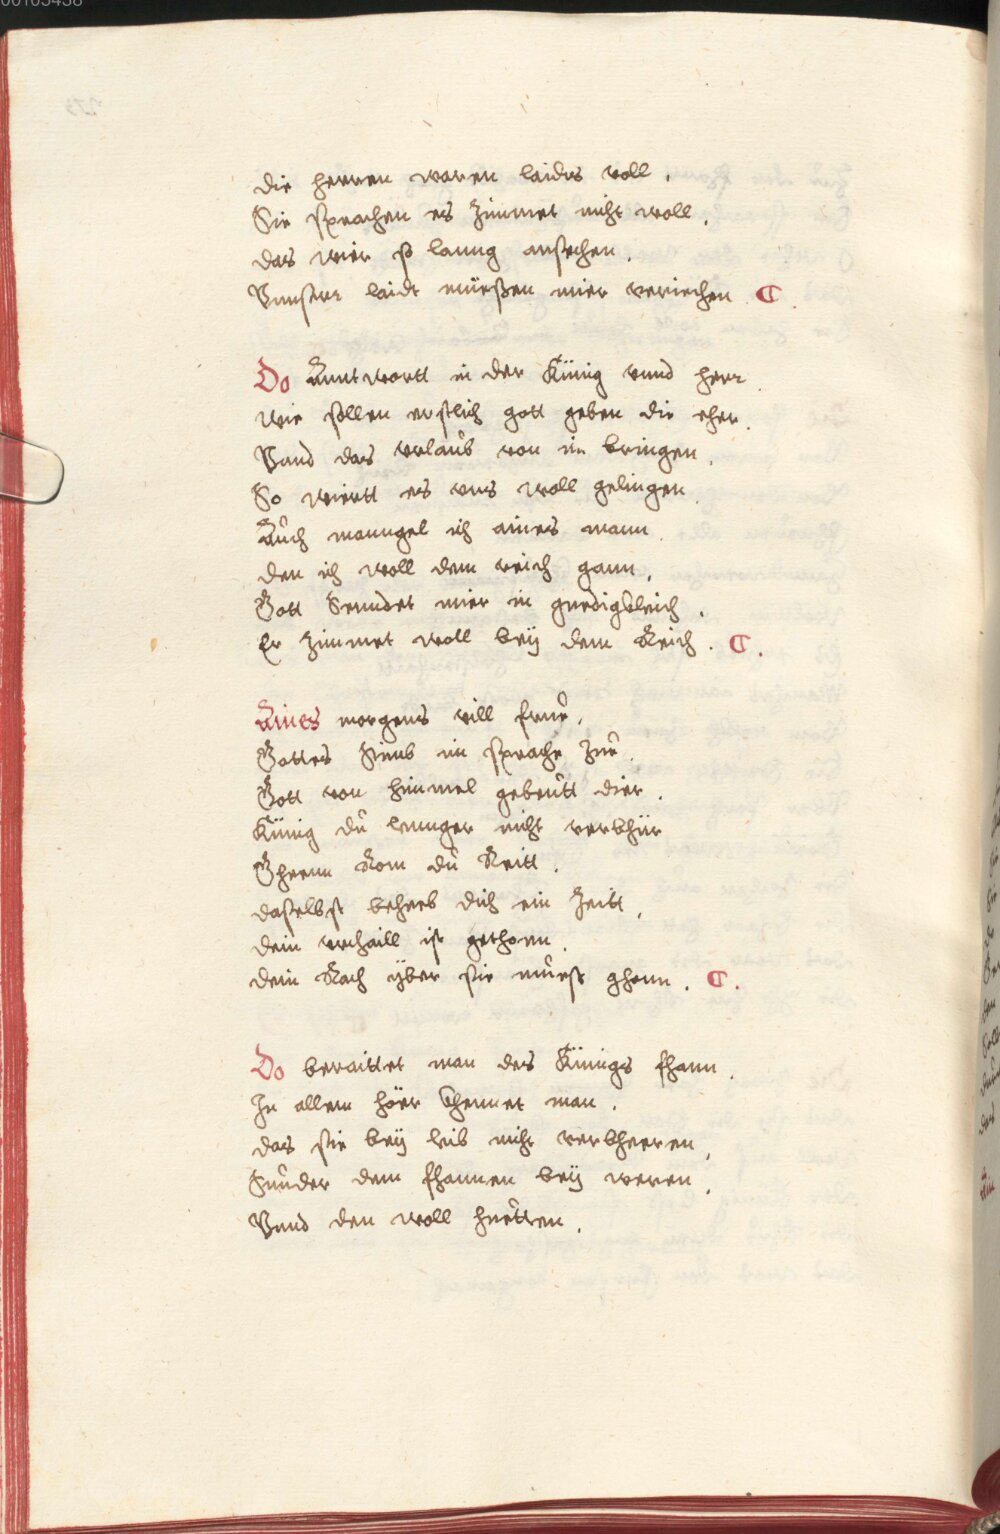 die herren waren laides voll.
Sie sprachen es Zimmet nicht woll.
das wier so lanng ansechen.
Vnnserr laidt müeßen mier veriechen.
Do Anntwortt in der Künig vnnd herr.
wie sollen erstlich gott geben die eher.
Vnnd das vrlaub von im bringen.
So wiertt es vns woll gelingen.
Auch manngel ich aines mann.
den ich woll dem reich gann.
Gott Senndet mier in genedigkleich.
Er Zimmet woll beÿ dem Reich.
Aines morgens vill frue.
Gottes stimb im sprache Zue.
Gott von himmel gebeutt dier.
Künig du lennger nicht verbhür
Ghenn Rom du Reitt.
daselbst beheb dich ein Zeitt.
dein vrthaill ist gethonn.
dein Rach ÿber sie muest ghonn.
Do beraittet man des Künigs fhann.
In allem höer khennet man.
das sie beÿ leib nicht verkheeren.
Sunder dem fhannen beÿ weren.
Vnnd den woll huetten.